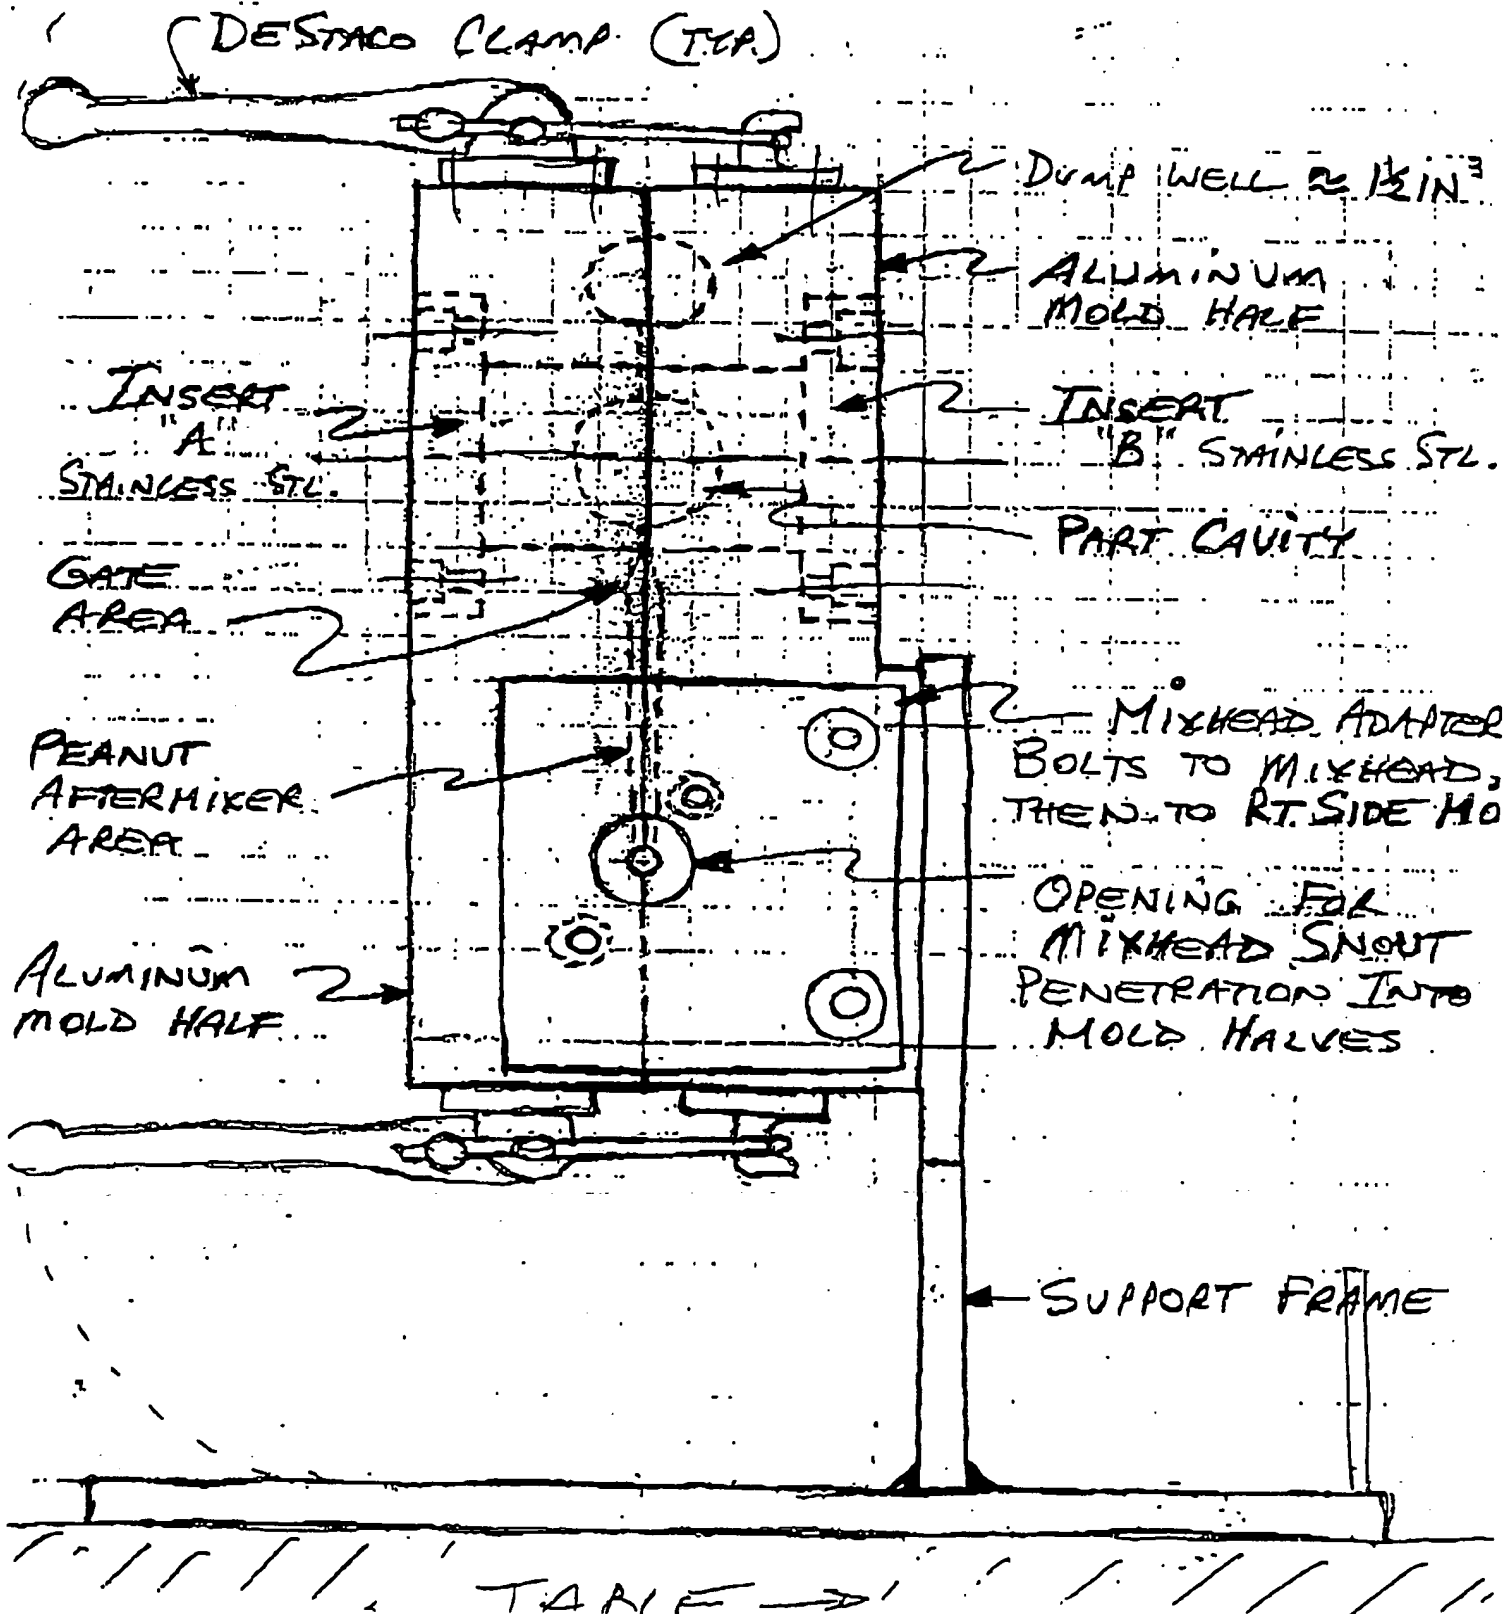 DESTACO CLAMP (TYP.)
DUMP WELL ≈ 1½ IN³
ALUMINUM
MOLD HALF
INSERT
"A"
STAINLESS STL.
INSERT
"B" STAINLESS STL.
PART CAVITY
GATE
AREA
MIXHEAD ADAPTER
BOLTS TO MIXHEAD,
THEN TO RT. SIDE MO
PEANUT
AFTERMIXER
AREA
OPENING FOR
MIXHEAD SNOUT
PENETRATION INTO
MOLD HALVES
ALUMINUM
MOLD HALF
SUPPORT FRAME
TABLE